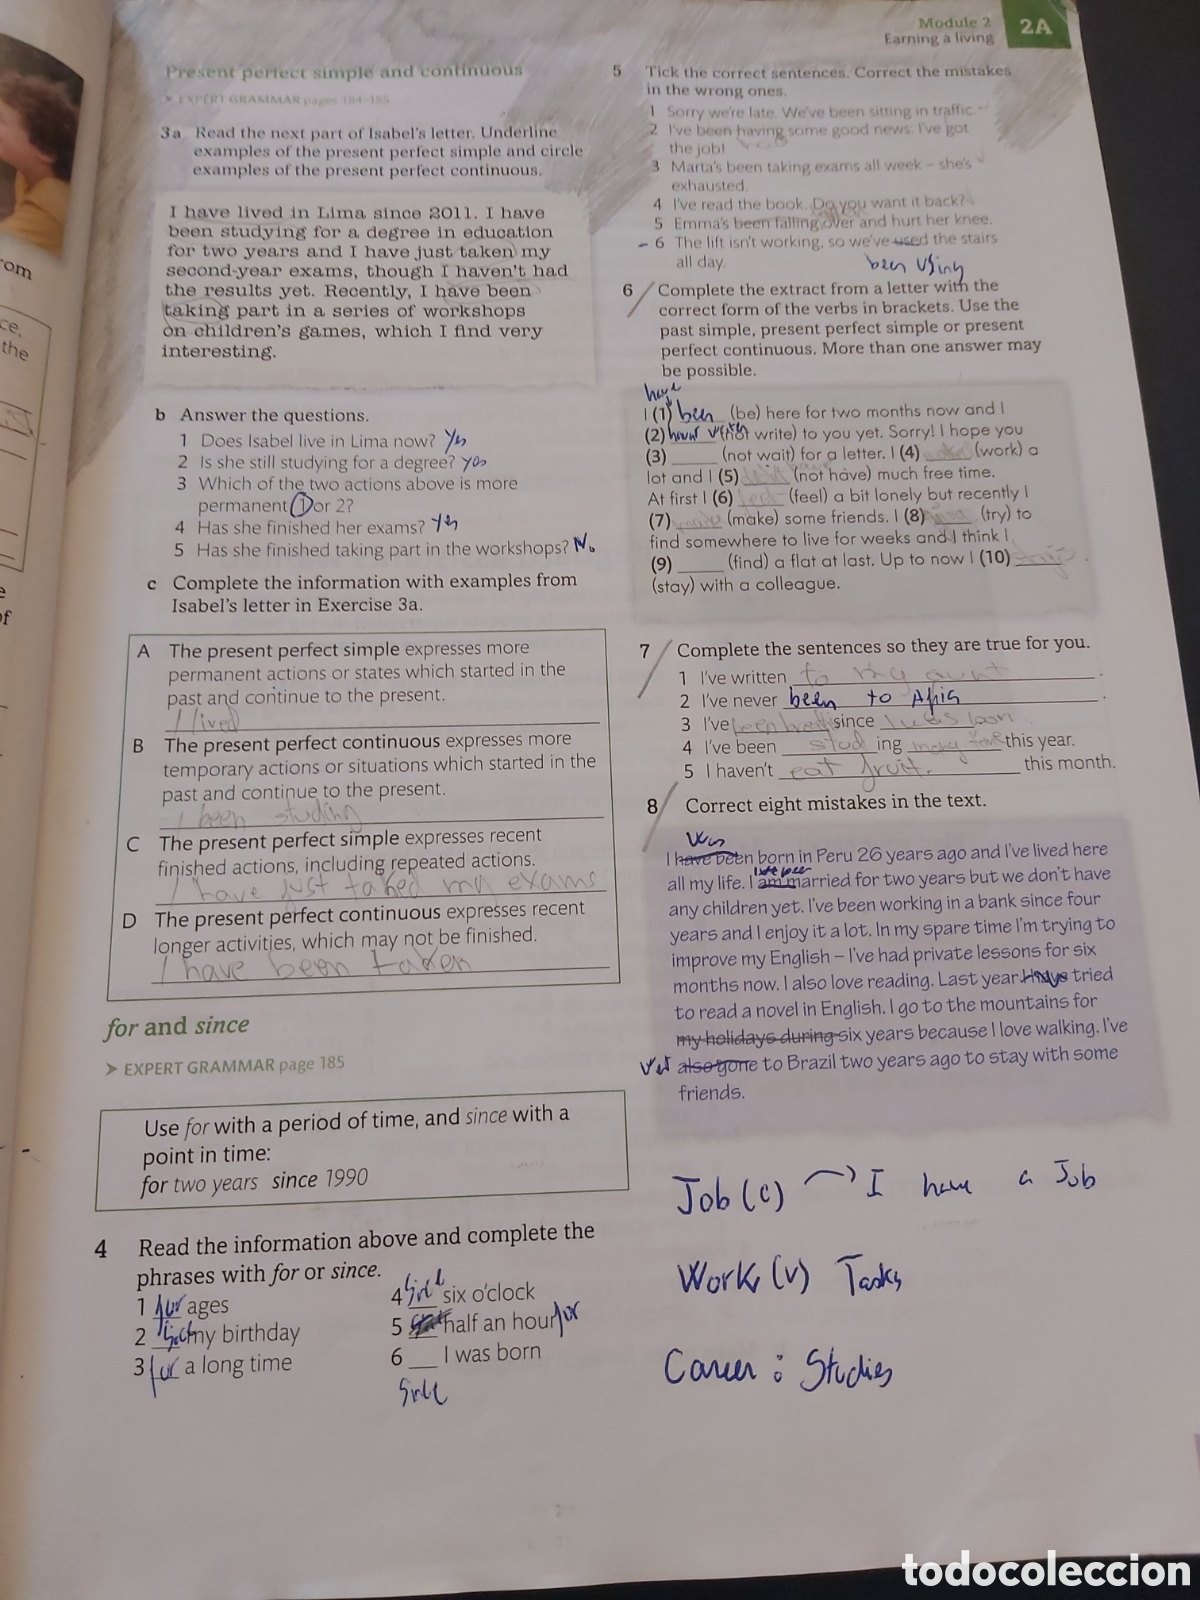 Module 2
Earning a living
2A
Present perfect simple and continuous
➤ EXPERT GRAMMAR pages 184–185
3a Read the next part of Isabel's letter. Underline
examples of the present perfect simple and circle
examples of the present perfect continuous.
I have lived in Lima since 2011. I have
been studying for a degree in education
for two years and I have just taken my
second-year exams, though I haven't had
the results yet. Recently, I have been
taking part in a series of workshops
on children's games, which I find very
interesting.
b Answer the questions.
1 Does Isabel live in Lima now? Yes
2 Is she still studying for a degree? yes
3 Which of the two actions above is more
permanent 1 or 2?
4 Has she finished her exams? Yes
5 Has she finished taking part in the workshops? No
c Complete the information with examples from
Isabel's letter in Exercise 3a.
A The present perfect simple expresses more
permanent actions or states which started in the
past and continue to the present.
I lived
B The present perfect continuous expresses more
temporary actions or situations which started in the
past and continue to the present.
I been studing
C The present perfect simple expresses recent
finished actions, including repeated actions.
I have just taked my exams
D The present perfect continuous expresses recent
longer activities, which may not be finished.
I have been taken
for and since
➤ EXPERT GRAMMAR page 185
Use for with a period of time, and since with a
point in time:
for two years since 1990
4 Read the information above and complete the
phrases with for or since.
1 for ages
2 my birthday
3 for a long time
4 six o'clock
5 half an hour for
6 I was born
5 Tick the correct sentences. Correct the mistakes
in the wrong ones.
1 Sorry we're late. We've been sitting in traffic.
2 I've been having some good news: I've got
the job!
3 Marta's been taking exams all week – she's
exhausted.
4 I've read the book. Do you want it back?
5 Emma's been falling over and hurt her knee.
6 The lift isn't working, so we've used the stairs
all day.
been using
6 Complete the extract from a letter with the
correct form of the verbs in brackets. Use the
past simple, present perfect simple or present
perfect continuous. More than one answer may
be possible.
have
I (1) been (be) here for two months now and I
(2) (not write) to you yet. Sorry! I hope you
(3) ______ (not wait) for a letter. I (4) (work) a
lot and I (5) (not have) much free time.
At first I (6) (feel) a bit lonely but recently I
(7) (make) some friends. I (8) (try) to
find somewhere to live for weeks and I think I
(9) ______ (find) a flat at last. Up to now I (10)
(stay) with a colleague.
7 Complete the sentences so they are true for you.
1 I've written to my aunt.
2 I've never been to Apis.
3 I've since
4 I've been studing this year.
5 I haven't eat fruit. this month.
8 Correct eight mistakes in the text.
I have been born in Peru 26 years ago and I've lived here
all my life. I am married for two years but we don't have
any children yet. I've been working in a bank since four
years and I enjoy it a lot. In my spare time I'm trying to
improve my English – I've had private lessons for six
months now. I also love reading. Last year I have tried
to read a novel in English. I go to the mountains for
my holidays during six years because I love walking. I've
also gone to Brazil two years ago to stay with some
friends.
Job (c) → I have a Job
Work (v) Tasks
Career : Studies
todocoleccion